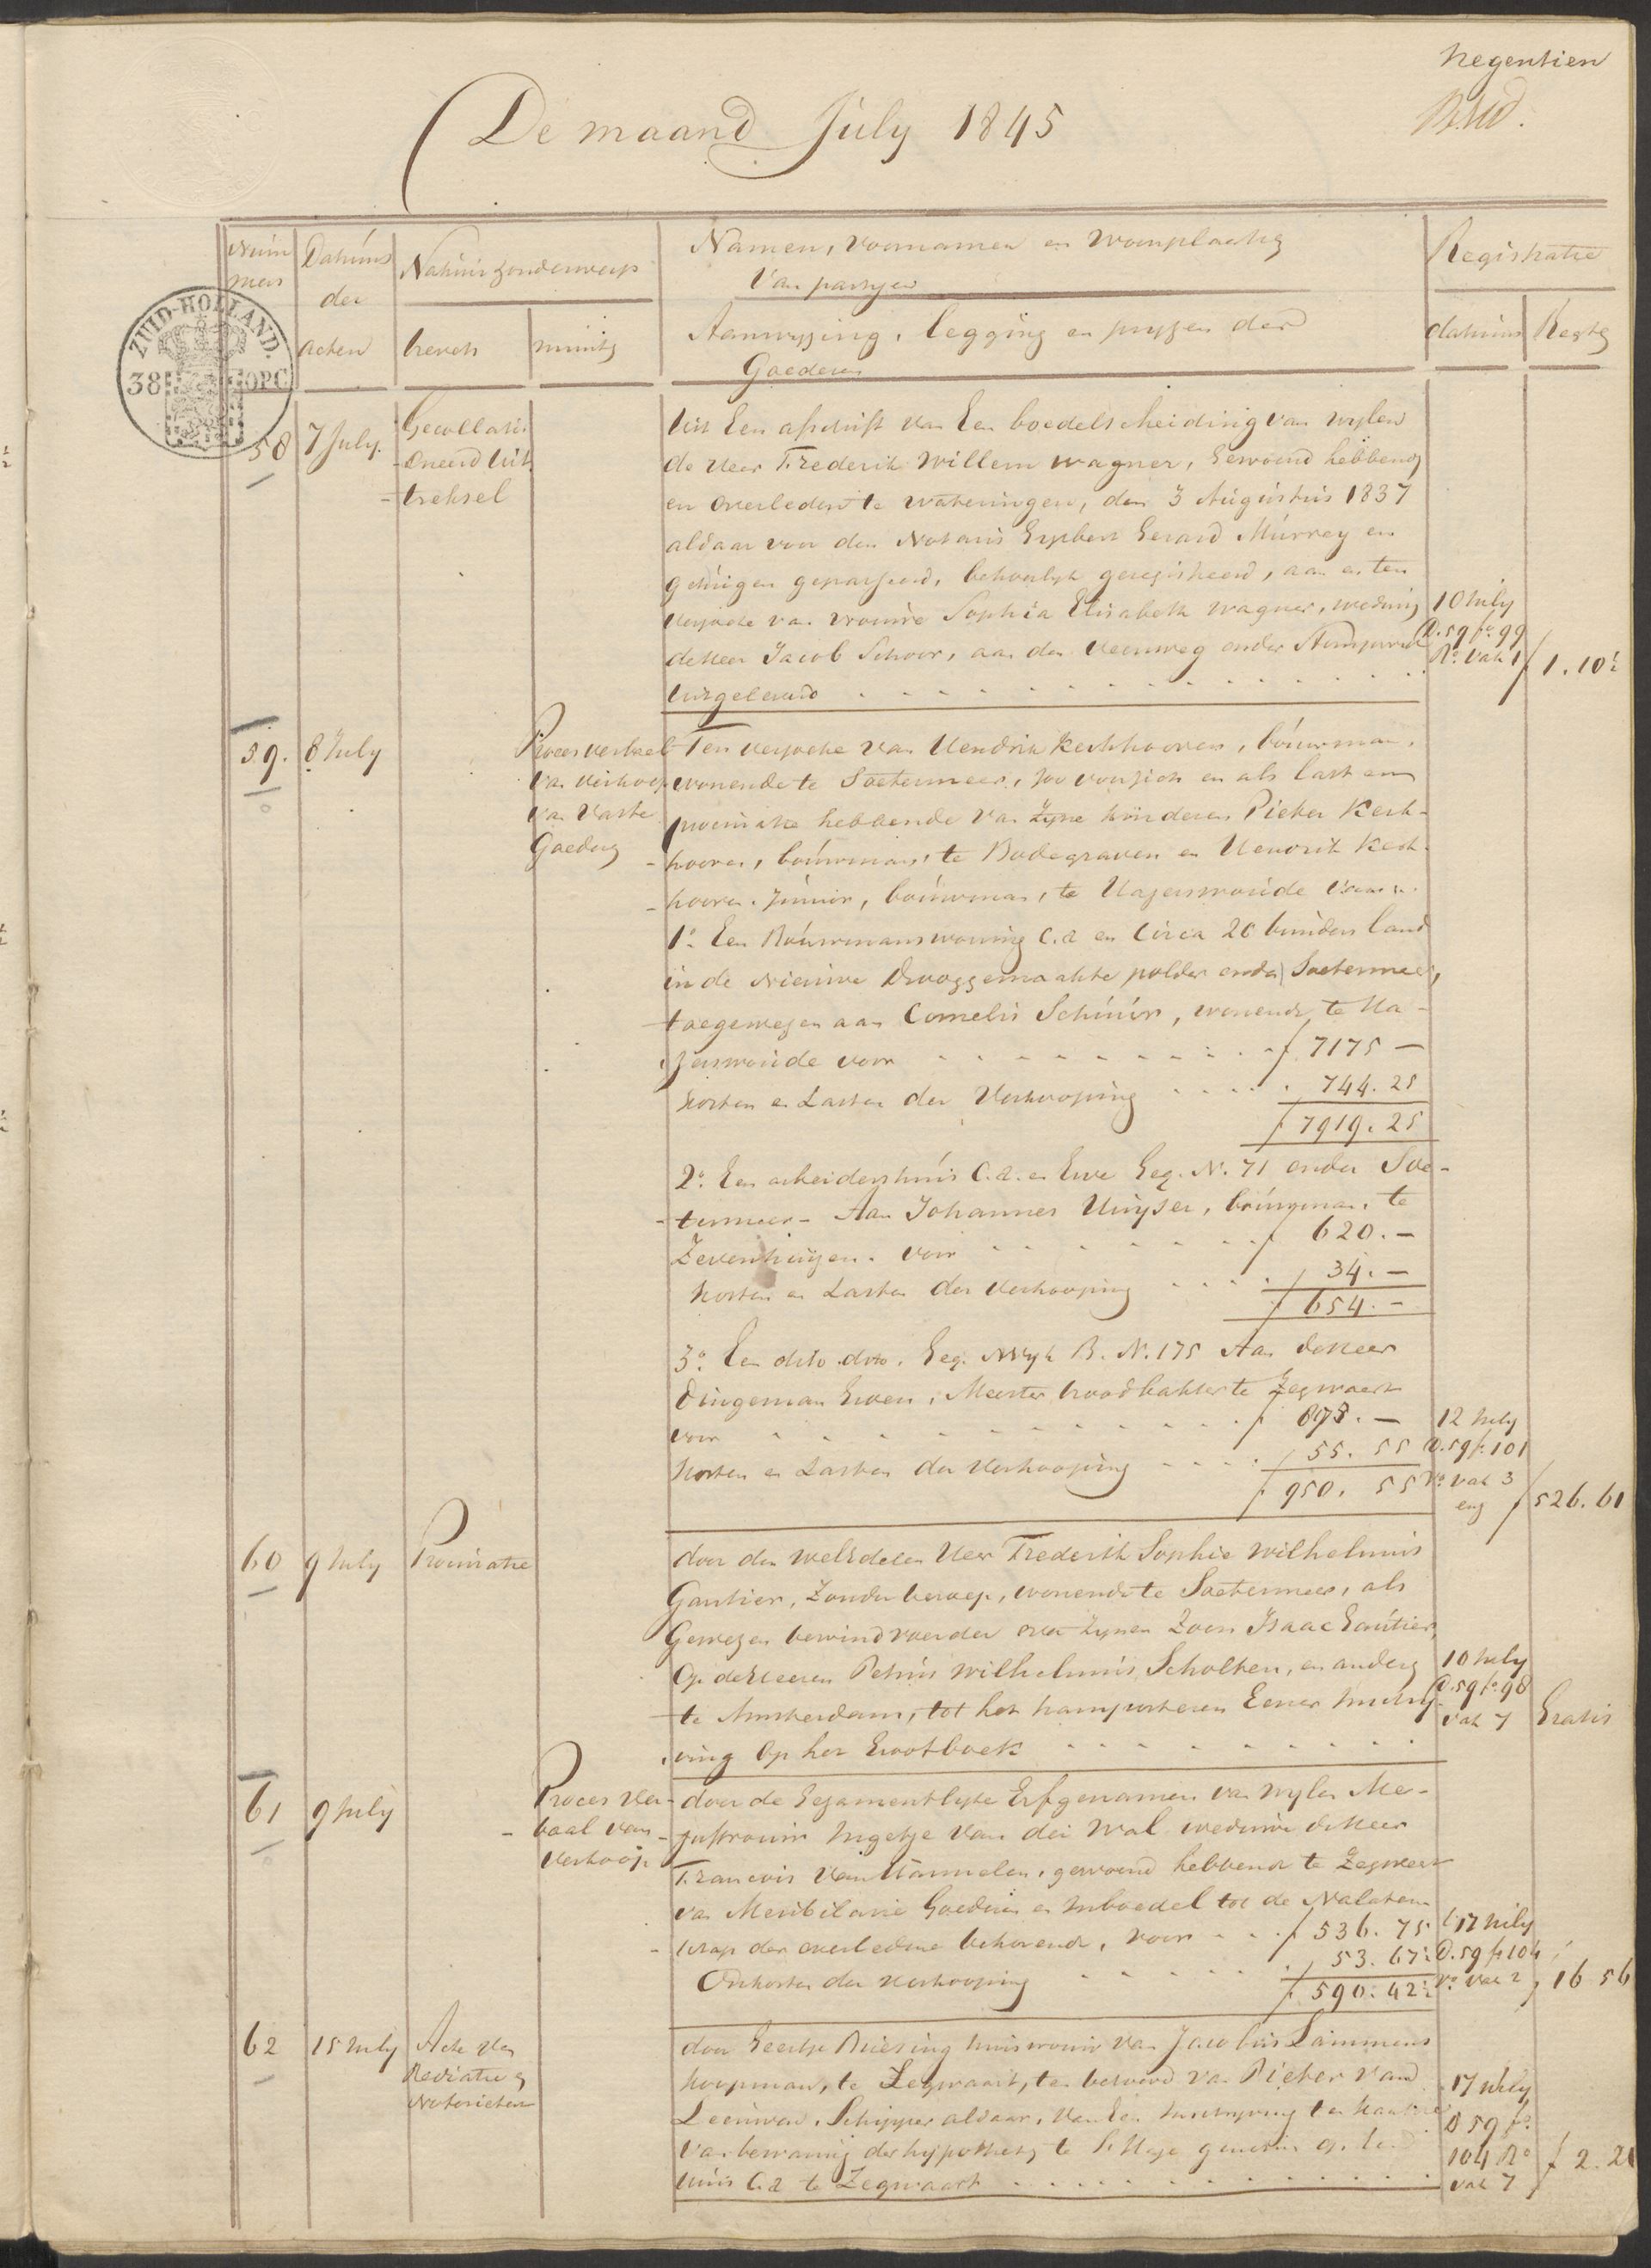 Negentien
De maand July 1845
Num
mers
Datums
der
acten
Natuur & onderwerp
brevets
minuts
Namen, voornamen en woonplaatsg
Van partijen
Aanwyzing, legging en pryzen der
Goederen
Registratie
datums
Regtg
ZUID-HOLLAND.
38
OPC
58
7 July.
Gecollati-
-oneerd uit
-treksel
Uit Een afschrift van Een boedelscheiding van wylen
de Heer Frederik Willem Wagner, Gewoond hebbende
en overleden te Wateringen, den 3 Augustus 1837
aldaar voor den Notaris Eypbert Gerard Murray en
getuigen gepasseerd, behoorlyk geregistreerd, aan en ten
verzoeke van vrouwe Sophia Elisabeth Wagner, weduwe
de Heer Jacob Schoor, aan den Veenweg onder Stompwyk
uitgeleverd
10 July
D. 59 fo. 99
Ro. vak 1
f 1.10½
59.
8 July
Proces verbael
van verkoop
van vaste
Goederg
Ten verzoeke van Hendrik Kerkhooven, bouwman,
wonende te Soetermeer, zoo voor zich en als last en
procuratie hebbende van zyne kinderen Pieter Kerk-
-hoven, bouwman, te Bodegraven en Hendrik Kerk-
-hoven. Junior, bouwman, te Hazerswoude van
1o. Een Bouwmanswoning c.a en Circa 20 bunders land
in de Nieuwe Drooggemaakte polder onder Soetermeer,
toegewezen aan Cornelis Schuur, wonende te Ha-
zerswoude voor f 7175 —
Kosten en Lasten der Verkooping 744.25
f 7919.25
2o. Een arbeidershuis c.a. en Erve Geq. N. 71 onder Soe-
-termeer - Aan Johannes Huyser, bouwman, te
Zevenhuizen. voor f 620.—
Kosten en Lasten der Verkooping f 34.—
f 654.—
3o. Een dito dito. Geq. Wyk B. N. 175 Aan de Heer
Dingeman Euven, Meester broodbakker te Zegwaart
voor f 895.—
Kosten en Lasten der Verkooping f 55.55
f 950.55
12 July
D. 59 f. 101
Vo. vak 3
f 526.61
60
9 July
Procuratie
door den WelEdelen Heer Frederik Sophie Wilhelmus
Gautier, Zonder beroep, wonende te Soetermeer, als
Gewezen bewindvoerder over zynen Zoon Isaac Gautier,
Op de Heeren Petrus Wilhelmus Scholten, en anderg
te Amsterdam, tot het transporteren Eener Inschry-
ving Op het Grootboek
10 July
D. 59 fo. 98
vak 7
Gratis
61
9 July
Proces ver-
-baal van
verkoop
door de Gezamentlyke Erfgenamen van wylen Me-
-juffrouw Ingetje van der Wal weduwe de Heer
Francois Van Hammelen, gewoond hebbende te Zegwaart
van Meubilaire Goederen en Inboedel tot de Nalaten-
-schap der overledene behorende, voor f 536.75
Onkosten der verkooping 53.67½
f 590.42½
17 July
D. 59 f. 104
Vo. vak 2
f 16 56
62
15 July
Acte van
Radiatie &
Notorieteit
door Geertje Buesing huisvrouw van Jacobus Lammens
koopman, te Zegwaart, ten behoeve van Pieter van
Leeuwen, Schipper aldaar, van Een Inschryving ten kantore
van bewaring der hypotheekg te S Hage genomen op een
huis c.a te Zegwaart
17 July
D 59 fo.
104 Ro
vak 7
f 2.21